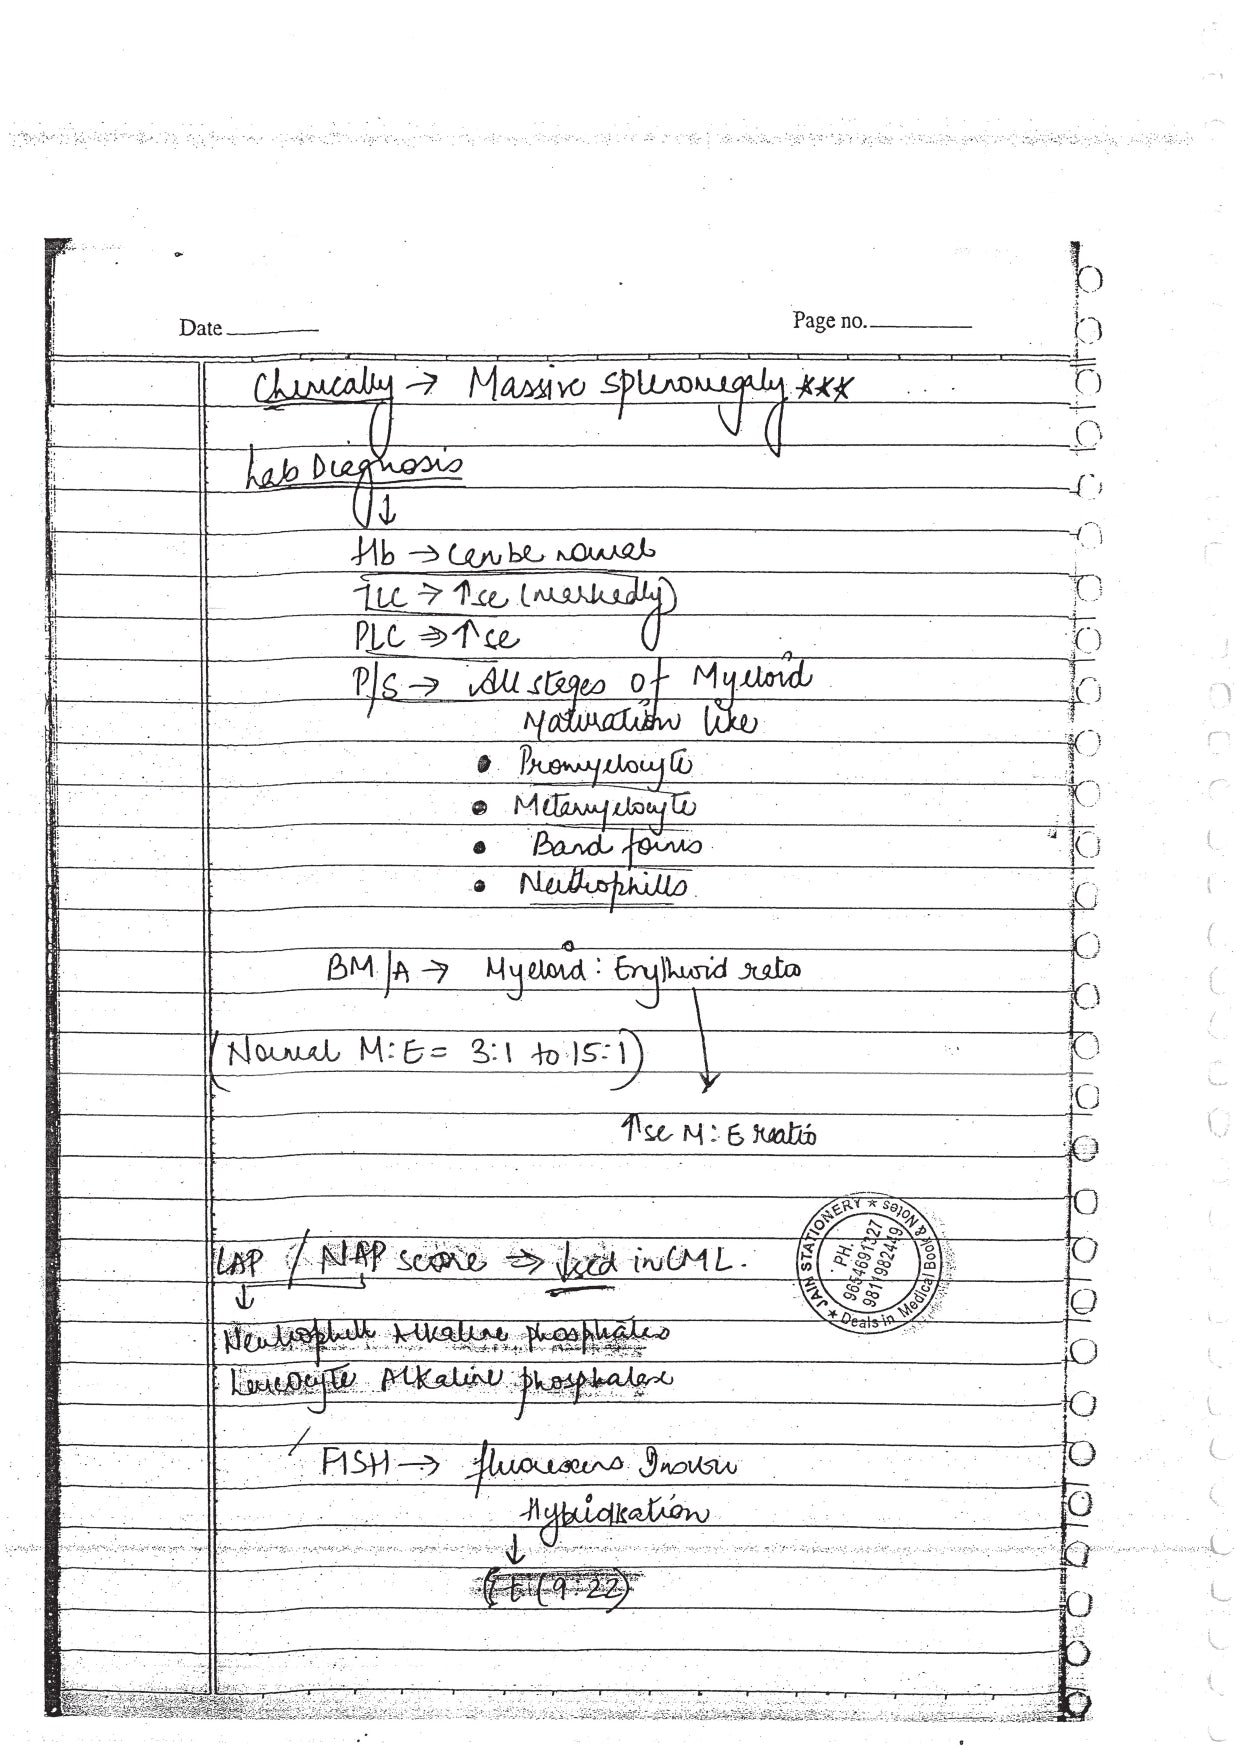 Date
Page no.
Clinically → Massive splenomegaly ***
Lab Diagnosis
↓
Hb → can be normal
TLC → ↑se (markedly)
PLC ⇒ ↑se
P/S → All stages of Myeloid
Maturation like
• Promyelocyte
• Metamyelocyte
• Band forms
• Neutrophills
BM/A → Myeloid : Erythroid ratio
(Normal M:E = 3:1 to 15:1)
↑se M:E ratio
LAP / NAP score ⇒ Used in CML.
↓
Neutrophill Alkaline phosphates
Leucocyte Alkaline phosphatase
FISH → fluorescens Insitu
Hybridisation
↓
(t (9:22)
JAIN STATIONERY ★ Deals in Medical Book & Notes ★
PH.
9654691327
9811982449